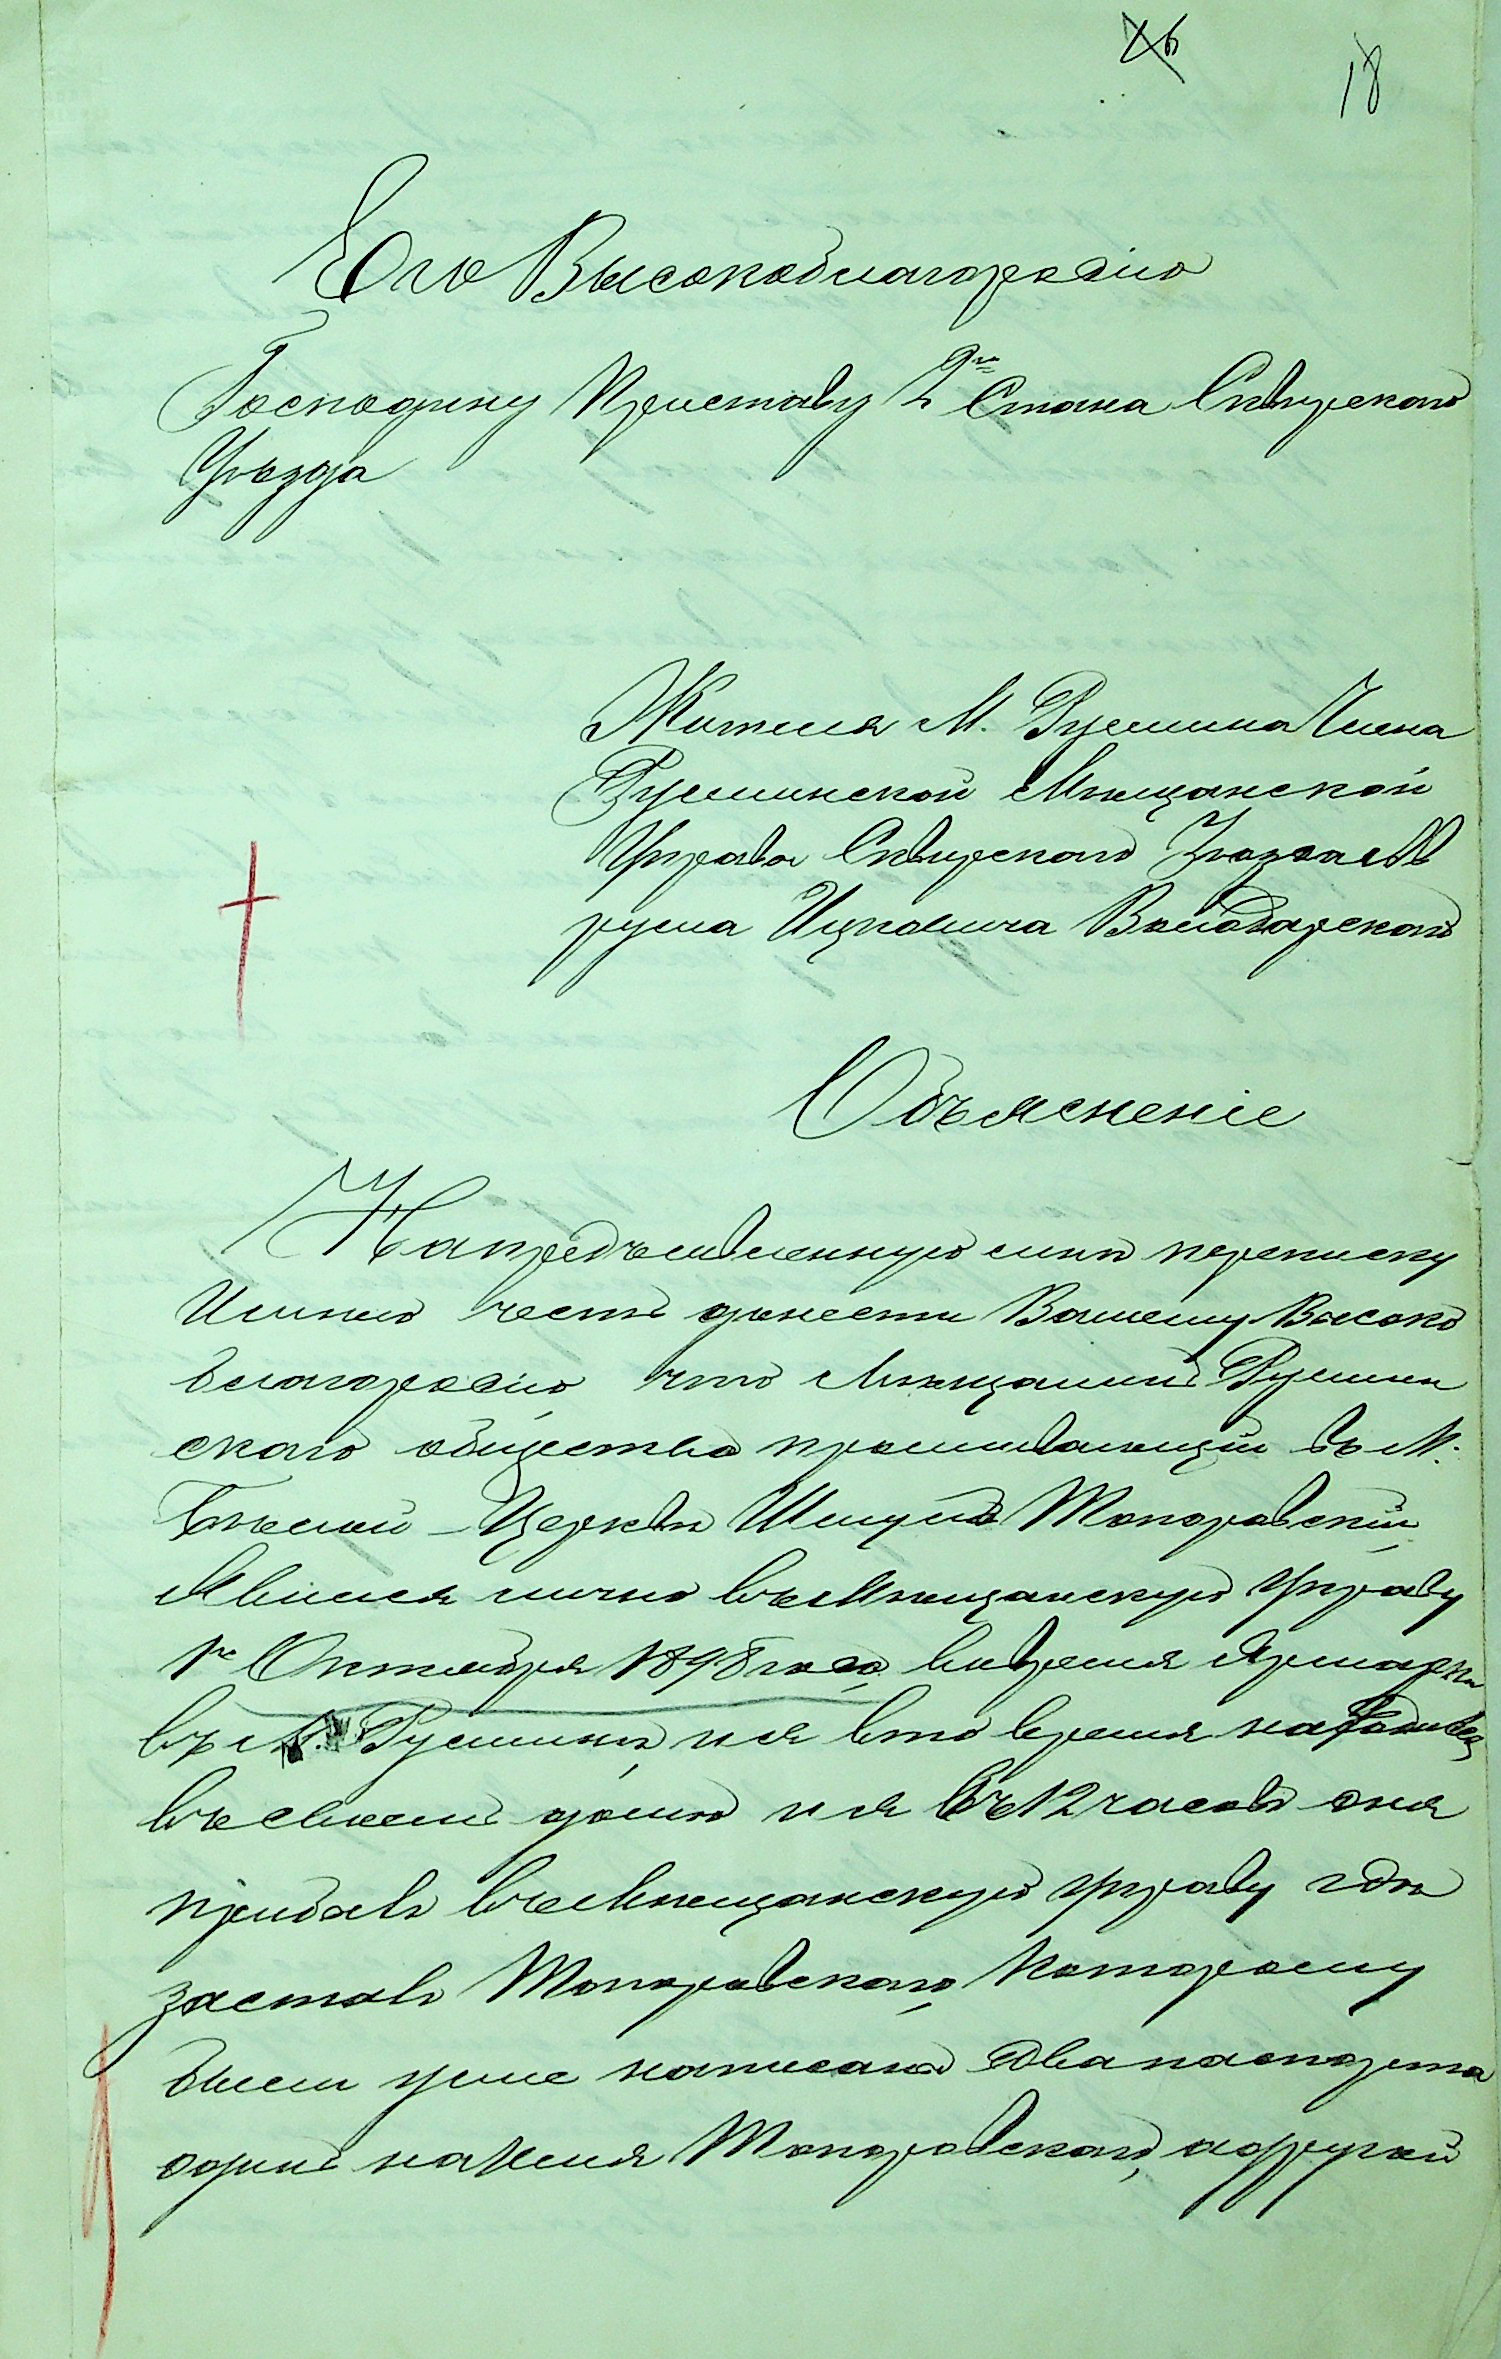 18
Его Высокоблагородію
Господину Приставу 2го Стана Сквирскаго
Уѣзда
Жителя М. Ружина Члена
Ружинской Мѣщанской
Управы Сквирскаго Уѣзда
Ицковича Володарскаго
Объясненіе
На предъявленную мнѣ переписку
Имѣю честь донести Вашему Высоко
благородію что Мѣщанинъ Ружин
скаго общества проживающій въ М.
Бѣлой-Церкви Шмуль Топоровскій,
Явился лично въ Мѣщанскую Управу
1го Октября 1898 года, во время Ярмарки
въ М. Ружинѣ, и я в то время находився
въ своемъ домѣ и я въ 12 часовъ дня
прибывъ въ Мѣщанскую управу гдѣ
заставъ Топоровскаго, Которому
были уже написаны два паспорта
одинъ на Имя Топоровскаго, а другой